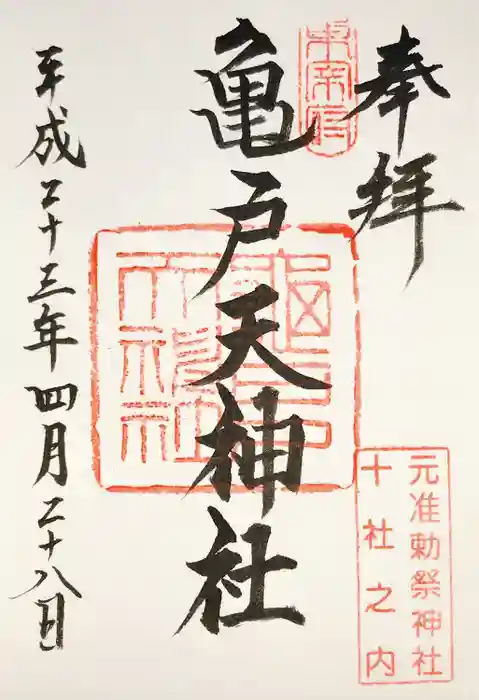 奉拝
亀戸天神社
平成二十三年四月二十八日
元准勅祭神社
十社之内